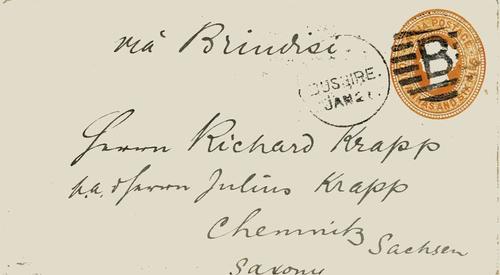 viâ Brindisi.
BUSHIRE.
JAN 2
B
Herrn Richard Krapp
p.a. Herrn Julius Krapp
Chemnitz
Sachsen
Saxony